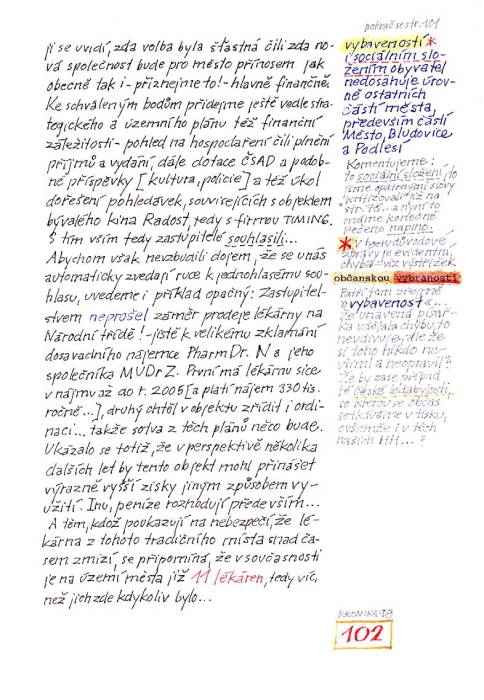 jí se uvidí, zda volba byla šťastná čili zda no-
vá společnost bude pro město přínosem jak
obecně tak i - přiznejme to! - hlavně finančně.
Ke schváleným bodům přidejme ještě vedle stra-
tegického a územního plánu též finanční
záležitosti - pohled na hospodaření čili plnění
příjmů a vydání, dále dotace ČSAD a podob-
né příspěvky [kultura, policie] a též úkol
dořešení pohledávek, souvisejících s objektem
bývalého kina Radost, tedy s firmou TIMING.
S tím vším tedy zastupitelé souhlasili...
Abychom však nevzbudili dojem, že se u nás
automaticky zvedají ruce k jednohlasému sou-
hlasu, uvedeme i příklad opačný: Zastupitel-
stvem neprošel záměr prodeje lékárny na
Národní třídě! - jistě k velikému zklamání
dosavadního nájemce PharmDr. N a jeho
společníka MUDr Z. První má lékárnu sice
v nájmu až do r. 2005 [a platí nájem 330 tis.
ročně...], druhý chtěl v objektu zřídit i ordi-
naci... takže sotva z těch plánů něco bude.
Ukázalo se totiž, že v perspektivě několika
dalších let by tento objekt mohl přinášet
výrazně vyšší zisky jiným způsobem vy-
užití. Inu, peníze rozhodují především...
A těm, kdož poukazují na nebezpečí, že lé-
kárna z tohoto tradičního místa snad ča-
sem zmizí, se připomíná, že v současnosti
je na území města již 11 lékáren, tedy víc,
než jich zde kdykoliv bylo...
pokrač. se str. 101
vybaveností *
i sociálním slo-
žením obyvatel
nedosahuje úrov-
ně ostatních
částí města,
především částí
Město, Bludovice
a Podlesí
Komentujeme:
to sociální složení
jsme opatrnými slovy
"kritizovali" už na
str. 76... a nyní to
máme konečně
řečeno naplno.
* V této důvodové
zprávy je evidentní
chyba - viz výstřižek
občanskou vybraností
Patří tam zřejmě
"vybavenost"...
že unavená písař-
ka udělala chybu, to
neudivuje, ale že
si toho nikdo ne-
všiml a neopravil?
Že by zase případ
té české lidabylosti,
se kterou se občas
setkáváme v tisku,
ovšemže i v těch
našich HH...?
KRONIKA 98
102